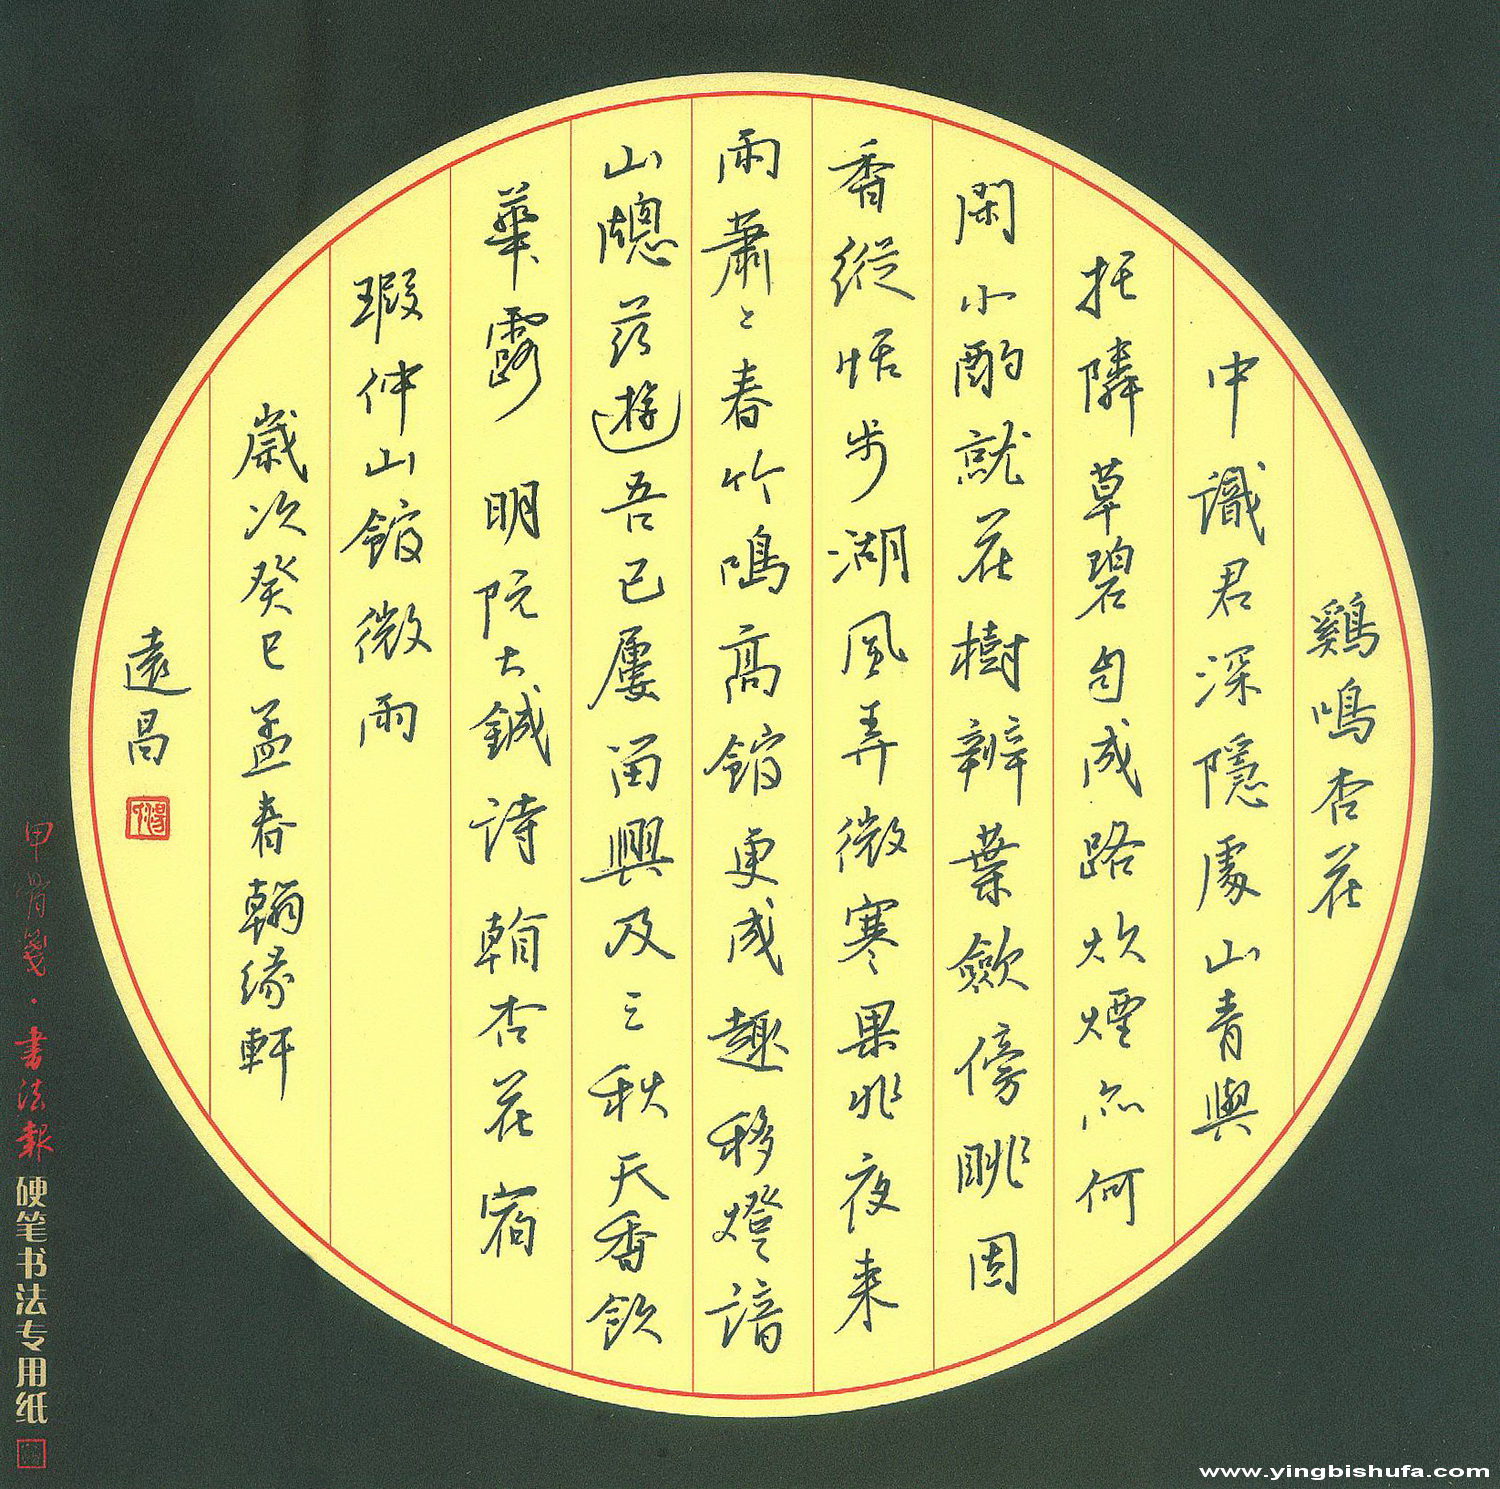 鷄鳴杏花
中識君深隱處山青與
托隣草碧自成路炊煙亦何
閑小酌就花樹辨葉歛傍眺因
香縱恬步湖風弄微寒果非夜來
雨蕭〻春竹鳴高館更成趣移燈諳
山牕茲遊吾已屢留興及三秋天香飲
華露 明阮大鋮詩 杏花宿
瑕仲山館微雨
歲次癸巳孟春翰緣軒
遠昌
甲骨箋·書法報 硬笔书法专用纸
www.yingbishufa.com